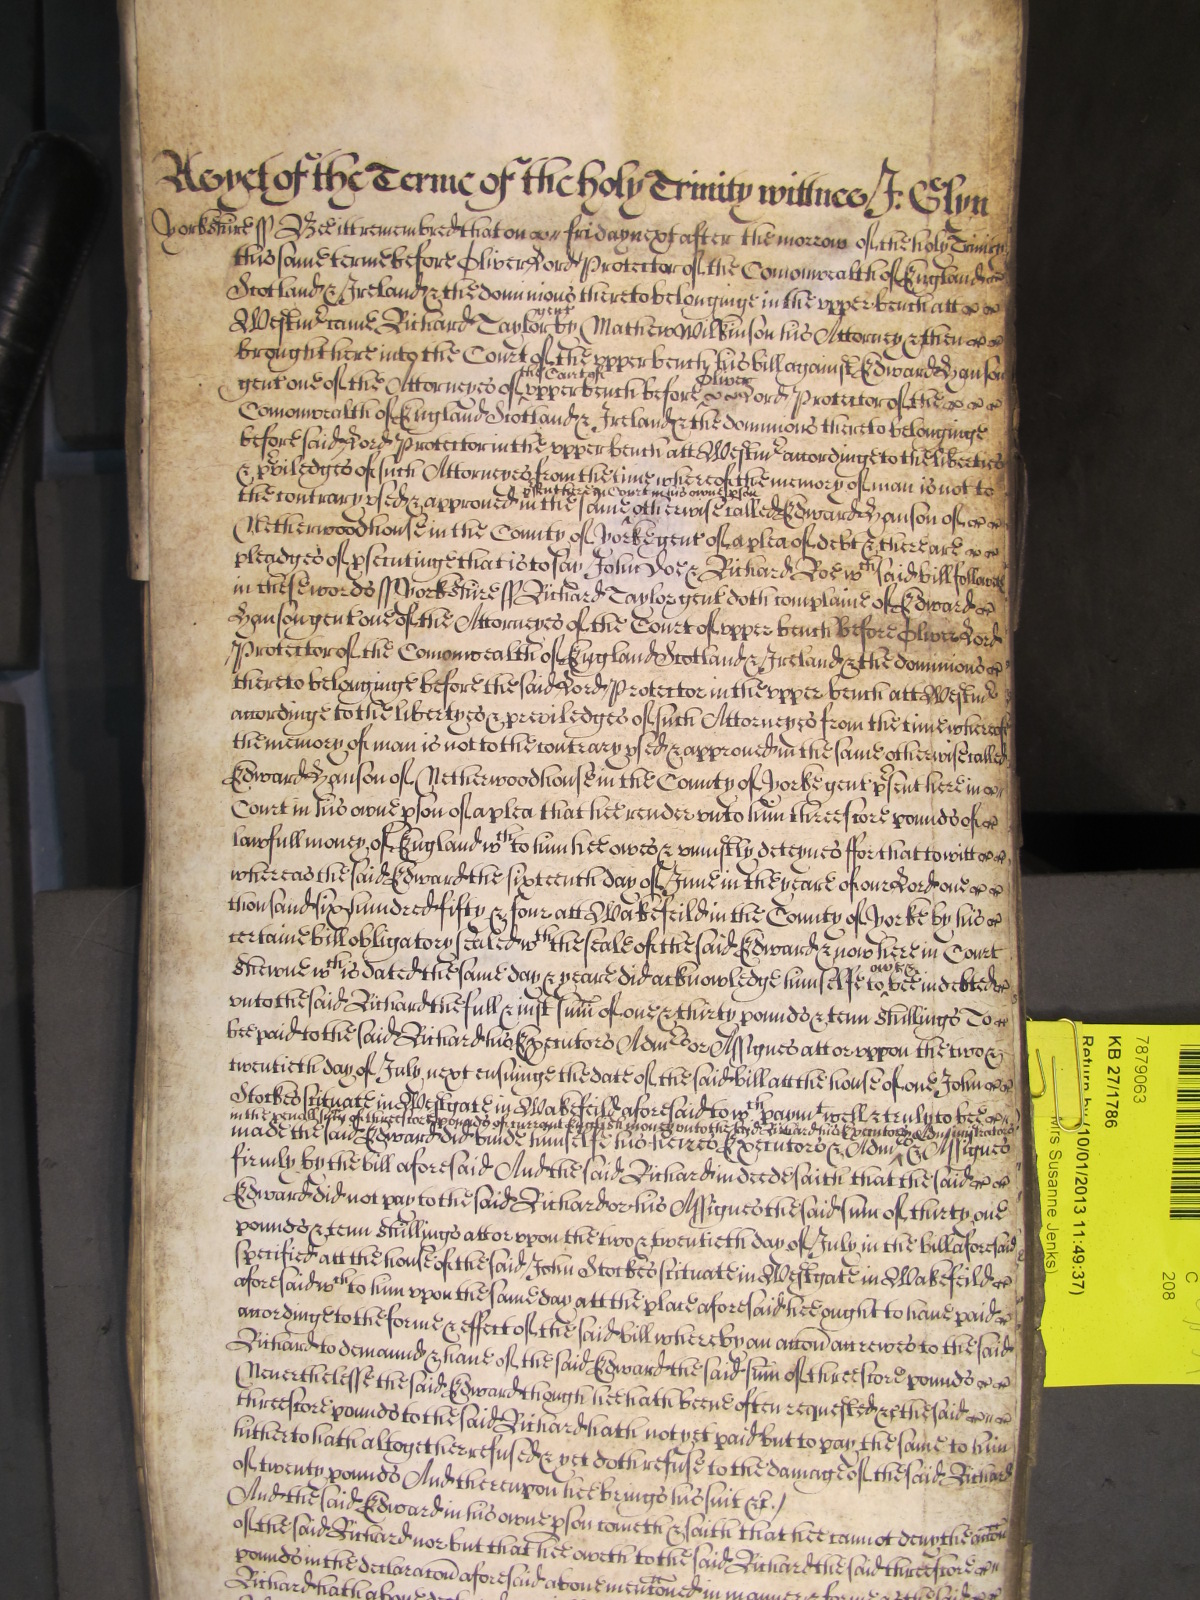 As yet of the Terme of the holy Trinity wittnes J: Glyn
Yorkshire ss Bee it remembred that on friday next after the morrow of the holy Trinity
this same terme before Oliver Lord Protector of the Comonwealth of England
Scotland & Ireland & the dominions thereto belonginge in the vpper bench att
Westmr came Richard Taylor gent by Mathew Wilkinson his Attorney & then
brought here into the Court of the vpper bench his bill against Edward Hanson
gent one of the Attorneyes of the Court of vpper bench before Oliver Lord Protector of the
Comonwealth of England Scotland & Ireland & the dominions thereto belonginge
before said Lord Protector in the vpper bench att Westmr accordinge to the liberties
& priviledges of such Attorneyes from the time whereof the memory of man is not to
the contrary vsed & approued in the same present here in Court in his owne pson otherwise called Edward Hanson of
Netherwoodhouse in the County of Yorke gent of a plea of debt & there are
pleadges of psecutinge that is to say John Doe & Richard Roe wch said bill followes
in these words ss Yorkshire ss Richard Taylor gent doth complaine of Edward
Hanson gent one of the Attorneyes of the Court of vpper bench before Oliver Lord
Protector of the Comonwealth of England Scotland & Ireland & the dominions
thereto belonginge before the said Lord Protector in the vpper bench att Westmr
accordinge to the libertyes & previledges of such Attorneyes from the time whereof
the memory of man is not to the contrary vsed & approued in the same otherwise called
Edward Hanson of Netherwoodhouse in the County of Yorke gent psent here in
Court in his owne pson of a plea that hee render vnto him threescore pounds of
lawfull money of England wch to him hee owes & vniustly deteynes ffor that to witt
whereas the said Edward the sixteenth day of June in the yeare of our Lord one
thousand six hundred fifty & four att Wakefeild in the County of Yorke by his
certaine bill obligatory sealed wth the seale of the said Edward & now here in Court
shewne wch is dated the same day & yeare did acknowledge himselfe to owe & bee indebted
vnto the said Richard the full & just sum of one & thirty pounds & tenn shillings To
bee paid to the said Richard his Executors Admrs or Assignes att or vppon the two &
twentieth day of July next ensuinge the date of the said bill att the house of one John
Stokes scituate in Westgate in Wakefeild aforesaid to wch paymt well & truly to bee
in the penall sum of threescore pounds of current English money vnto the said Richard his Executors Administrators
made the said Edward did binde himselfe his heires Executors & Admrs & Assignes
firmly by the bill aforesaid And the said Richard in deede saith that the said
Edward did not pay to the said Richard or his Assignes the said sum of thirty one
pounds & tenn shillings att or vppon the two & twentieth day of July in the bill aforesaid
specified att the house of the said John Stokes scituate in Westgate in Wakefeild
aforesaid wch to him vppon the same day att the place aforesaid hee ought to haue paid
accordinge to the forme & effect of the said bill whereby an accon accrewes to the said
Richard to demaund & haue of the said Edward the said sum of threescore pounds
Neverthelesse the said Edward though hee hath beene often requested &c the said
threescore pounds to the said Richard hath not yet paid but to pay the same to him
hitherto hath altogether refused & yet doth refuse to the damage of the said Richard
of twenty pounds And thereupon hee brings his suit &c.
And the said Edward in his owne pson cometh & saith that hee cannot deny the accon
of the said Richard nor but that hee oweth to the said Richard the said threescore
pounds in the declaracon aforesaid aboue mentioned in manner & forme as the said
Richard hath aboue
7879063
KB 27/1786
Return by (10/01/2013 11:49:37)
Mrs Susanne Jenks)
C
208